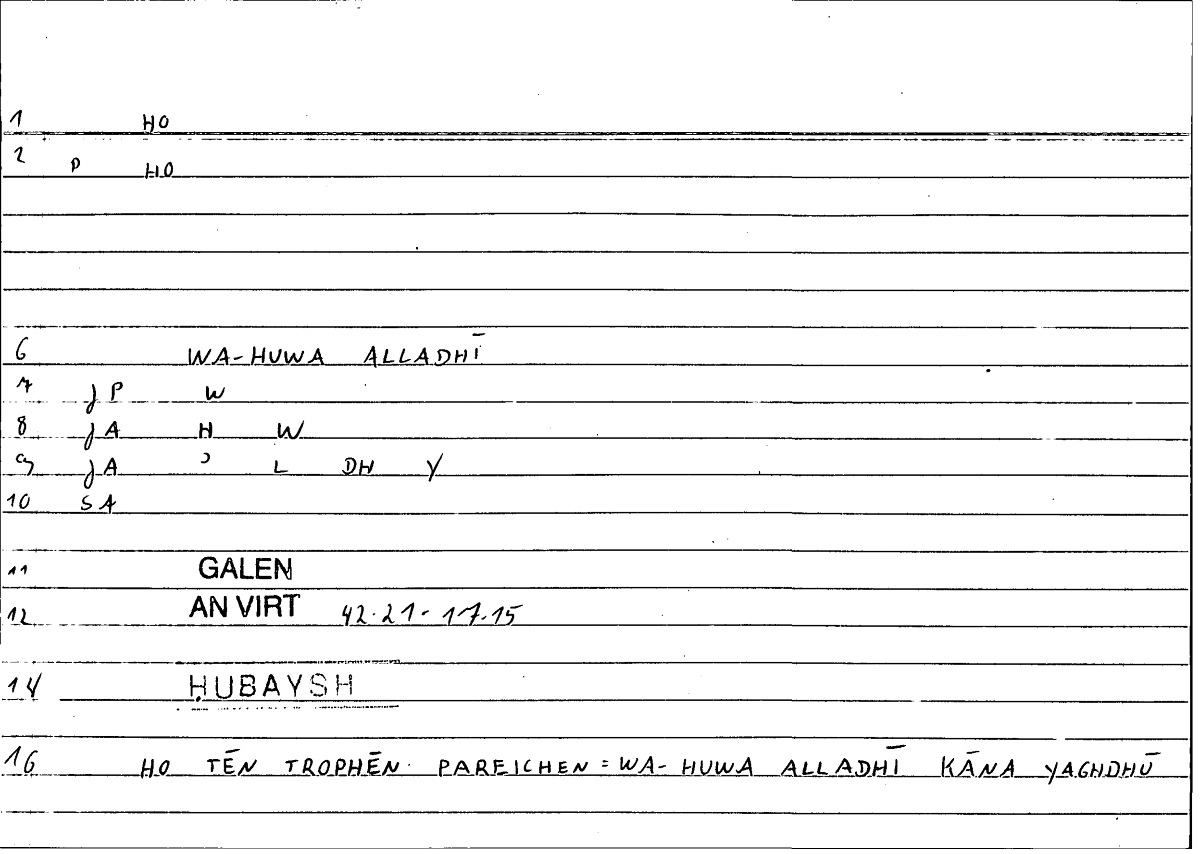 1 HO
2 P HO
6 WA-HUWA ALLADHĪ
7 JP W
8 JA H W
9 JA ʾ L DH Y
10 SA
11 GALEN
12 AN VIRT 42.21-17.15
14 ḤUBAYSH
16 HO TĒN TROPHĒN PAREICHEN = WA-HUWA ALLADHĪ KĀNA YAGHDHŪ